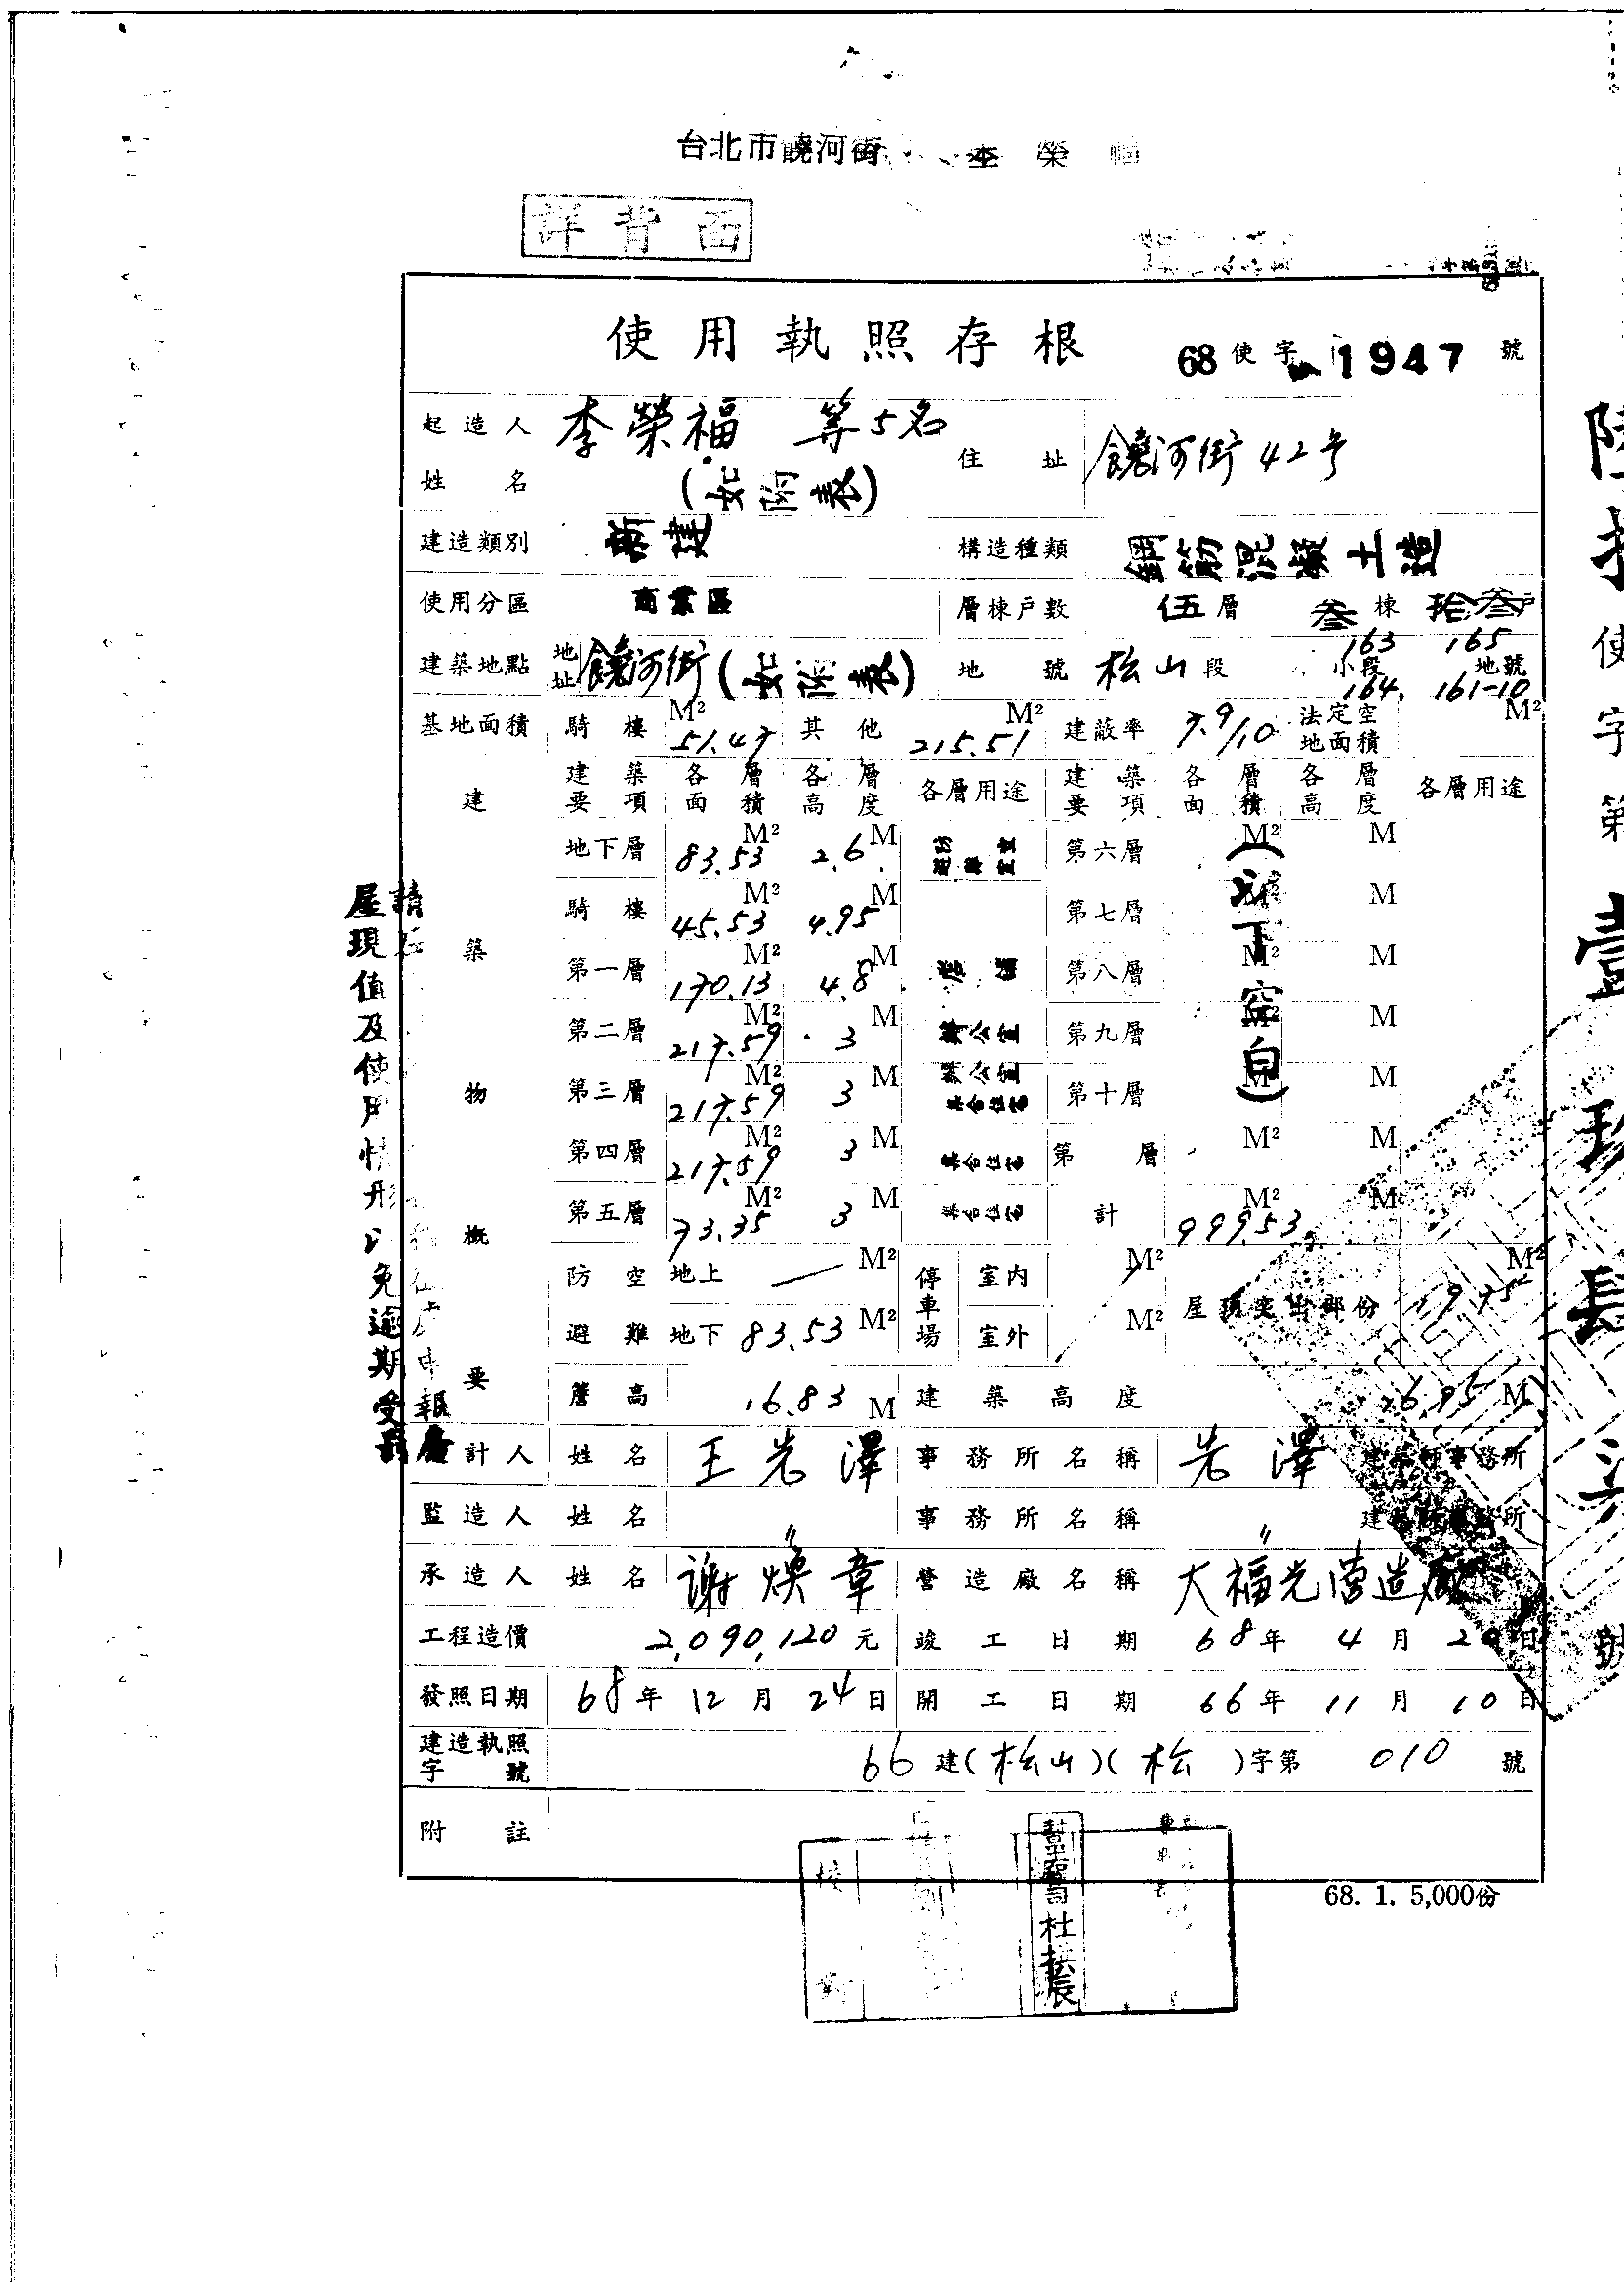 台北市饒河街 李榮福
詳背面
使用執照存根 68使字 1947 號
起造人姓名 李榮福 等5名 (如附表) 住址 饒河街42号
建造類別 新建 構造種類 鋼筋混凝土造
使用分區 商業區 層棟戶數 伍層 叁棟 拾叁戶
建築地點 地址 饒河街(如附表) 地號 松山段 小段 163 165 164, 161-10 地號
基地面積 騎樓 51.47 M² 其他 215.51 M² 建蔽率 7.9/10 法定空地面積 M²
建築物概要
建築要項 各層面積 各層高度 各層用途 建築要項 各層面積 各層高度 各層用途
地下層 83.53 M² 2.6 M 第六層 M² M
騎樓 45.53 M² 4.95 M 第七層 M
第一層 170.13 M² 4.8 M 店舖 第八層 M² M
第二層 217.59 M² 3 M 辦公室 第九層 M² M
第三層 217.59 M² 3 M 辦公室 集合住宅 第十層 M² M
第四層 217.59 M² 3 M 集合住宅 第 層 M² M
第五層 73.35 M² 3 M 集合住宅 計 999.53 M² M
(以下空白)
防空避難 地上 — M² 停車場 室內 M² 屋頂突出部份 M²
地下 83.53 M² 室外 M²
簷高 16.83 M 建築高度 M
計人 姓名 王岩澤 事務所名稱 岩澤 建築師事務所
監造人 姓名 〃 事務所名稱 〃 建築師事務所
承造人 姓名 謝煥章 營造廠名稱 大福光营造廠
工程造價 2,090,120元 竣工日期 68年4月20日
發照日期 68年12月24日 開工日期 66年11月10日
建造執照字號 66建(松山)(松)字第 010 號
附註
68. 1. 5,000份
校
杜
辰
屋現值及使用情形以免逾期受罰
請
申報
陸拾
使字第
壹
玖
肆
柒
號